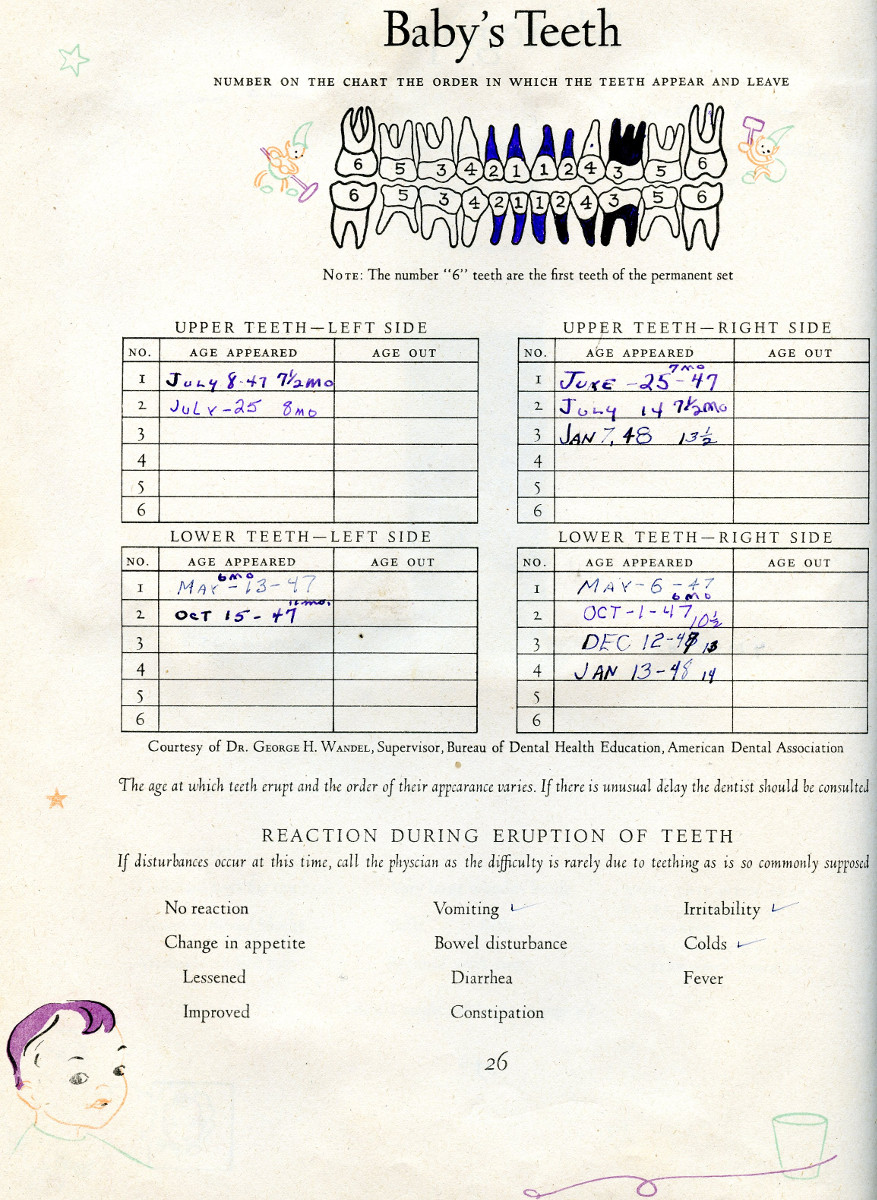 Baby's Teeth
NUMBER ON THE CHART THE ORDER IN WHICH THE TEETH APPEAR AND LEAVE
6 5 3 4 2 1 1 2 4 3 5 6
6 5 3 4 2 1 1 2 4 3 5 6
NOTE: The number "6" teeth are the first teeth of the permanent set
UPPER TEETH—LEFT SIDE
NO. AGE APPEARED AGE OUT
1 JULY 8-47 7½MO
2 JULY-25 8MO
3
4
5
6
UPPER TEETH—RIGHT SIDE
NO. AGE APPEARED AGE OUT
1 JUNE -25-47 7MO
2 JULY 14 7½MO
3 JAN 7, 48 13½
4
5
6
LOWER TEETH—LEFT SIDE
NO. AGE APPEARED AGE OUT
1 MAY-13-47 6MO
2 OCT 15-47 11MO.
3
4
5
6
LOWER TEETH—RIGHT SIDE
NO. AGE APPEARED AGE OUT
1 MAY-6-47 6MO
2 OCT-1-47 10½
3 DEC 12-48 13
4 JAN 13-48 14
5
6
Courtesy of DR. GEORGE H. WANDEL, Supervisor, Bureau of Dental Health Education, American Dental Association
The age at which teeth erupt and the order of their appearance varies. If there is unusual delay the dentist should be consulted
REACTION DURING ERUPTION OF TEETH
If disturbances occur at this time, call the physcian as the difficulty is rarely due to teething as is so commonly supposed
No reaction Vomiting ✓ Irritability ✓
Change in appetite Bowel disturbance Colds ✓
Lessened Diarrhea Fever
Improved Constipation
26